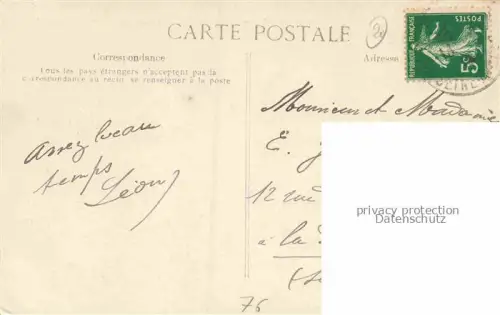 CARTE POSTALE
Correspondance
Tous les pays étrangers n'acceptent pas la
correspondance au recto se renseigner à la poste
Adresse
POSTES
RÉPUBLIQUE FRANÇAISE
5c
assez beau
temps
Léon
Monsieur et Madame
E.
12 rue
à la
privacy protection
Datenschutz
76